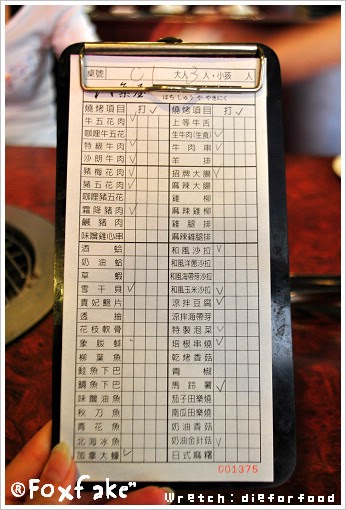 桌號 C 大人 3 人・小孩 人
八条屋
はち しゅう や やきにく
燒烤項目 打✓ 燒烤項目 打✓
牛五花肉 ✓ 上等牛舌
咖哩牛五花 生牛肉(生食) ✓
特級牛肉 ✓ 牛肉串 ✓
沙朗牛肉 ✓ 羊排
豬梅花肉 ✓ 招牌大腸 ✓
豬五花肉 ✓ 麻辣大腸
咖哩豬五花 雞柳
霜降豬肉 ✓ 麻辣雞柳
鹹豬肉 雞腿排
味噌雞心串 麻辣雞腿排
酒蛤 和風沙拉 ✓
奶油蛤 和風洋蔥沙拉
草蝦 和風海帶芽沙拉
雪干貝 ✓ 和風玉米沙拉 ✓
貴妃鮑片 涼拌豆腐 ✓
透抽 涼拌海帶芽
花枝軟骨 特製泡菜 ✓
象拔蚌 培根串燒 ✓
柳葉魚 乾烤香菇
鮭魚下巴 青椒
鯛魚下巴 馬鈴薯 ✓
味噌油魚 茄子田樂燒
秋刀魚 南瓜田樂燒
青花魚 奶油香菇
北海冰魚 奶油金針菇 ✓
加拿大蠔 ✓ 日式麻糬
001375
®Foxfake"
Wretch:dieforfood